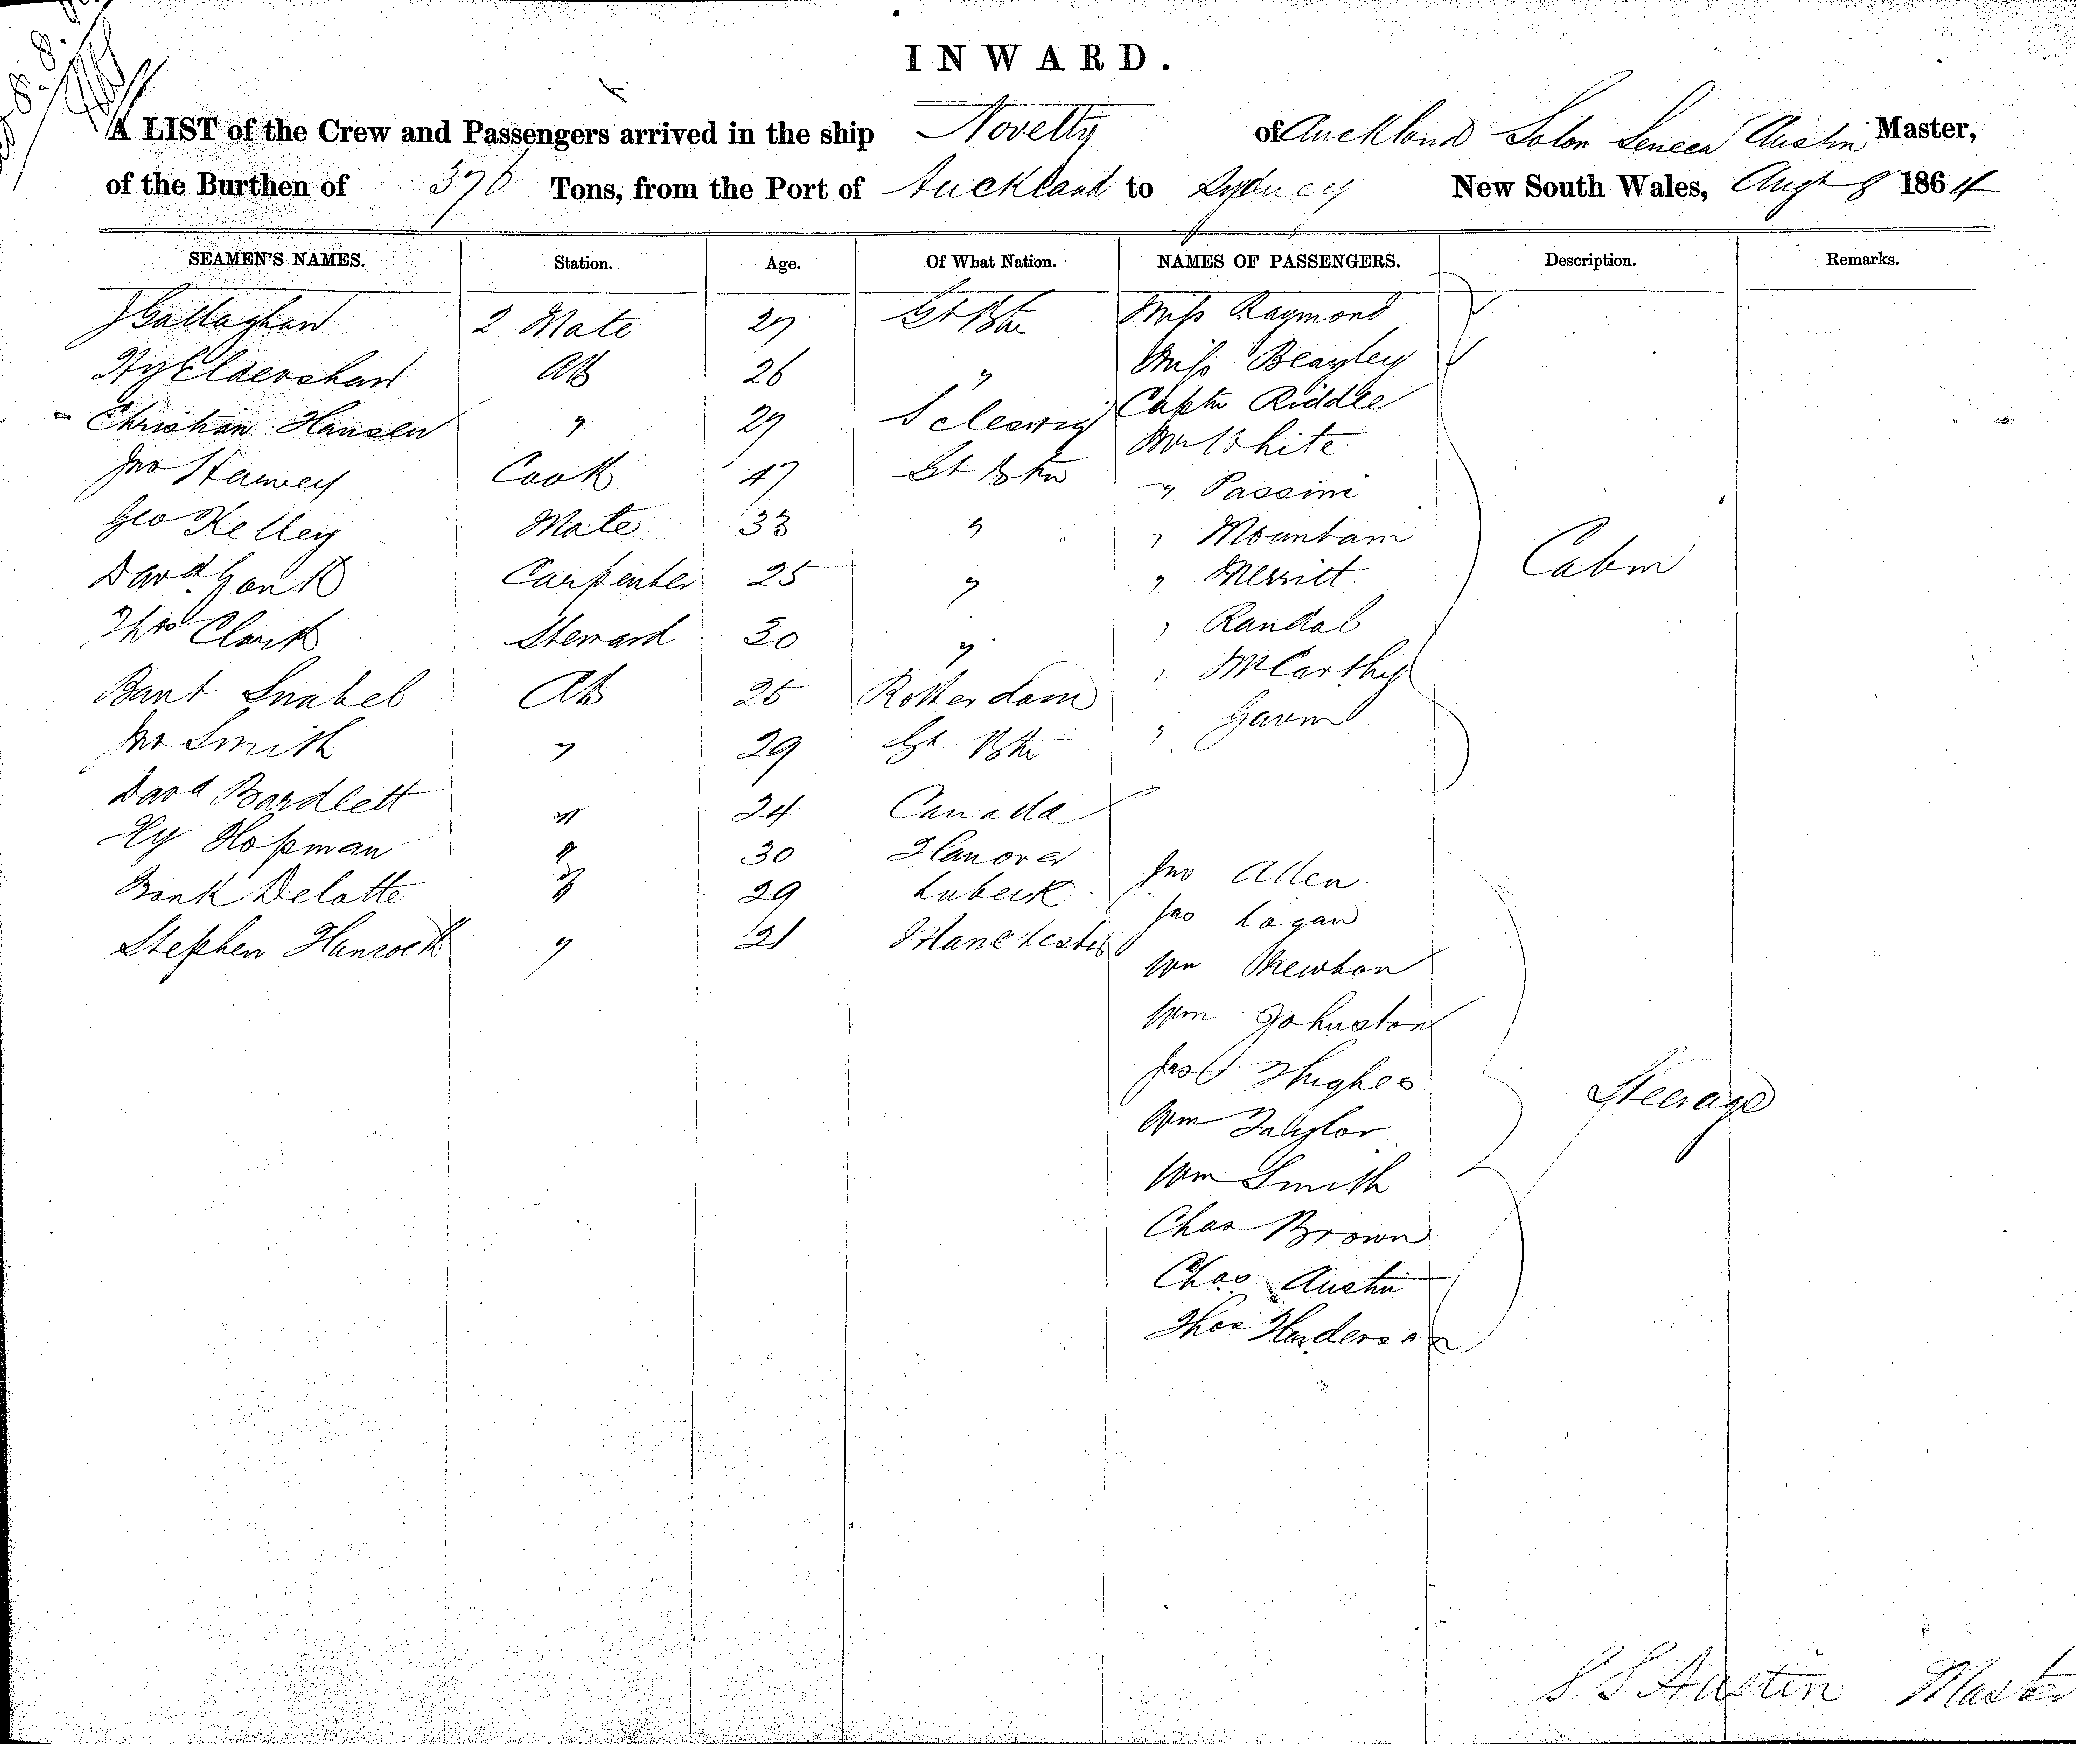 INWARD.
A LIST of the Crew and Passengers arrived in the ship Novelty of Auckland Solon Seneca Austin Master,
of the Burthen of 376 Tons, from the Port of Auckland to Sydney New South Wales, Augt 8 1864
SEAMEN'S NAMES. Station. Age. Of What Nation. NAMES OF PASSENGERS. Description. Remarks.
J Gallaghan 2 Mate 27 Gt Btn Miss Raymond
Hy Eldershaw AB 26 " Miss Beayley
Christian Hansen " 29 Scleswig Captn Riddle
Jno Harvey Cook 47 Gt Btn Mr White
" Passini
Geo Kelley Mate 33 " " Mountain
Cabin
Davd Carpenter 25 " " Merritt
Thos Clark Steward 30 " " Randal
" McCarthy
Bant Snabel AB 25 Rotterdam
" Gavin
Jno Smith " 29 Gt Btn
Davd Bardlett " 24 Canada
Hy Hopman " 30 Hanover
Jno Allen
Bank Delatte " 29 Lubeck
Jas Logan
Stephen Hancock " 21 Manchester
Wm Newton
Wm Johnston
Jas Hughes
Steerage
Wm Taylor
Wm Smith
Chas Brown
Chas Austin
Thos Henderson
S. S Austin Master